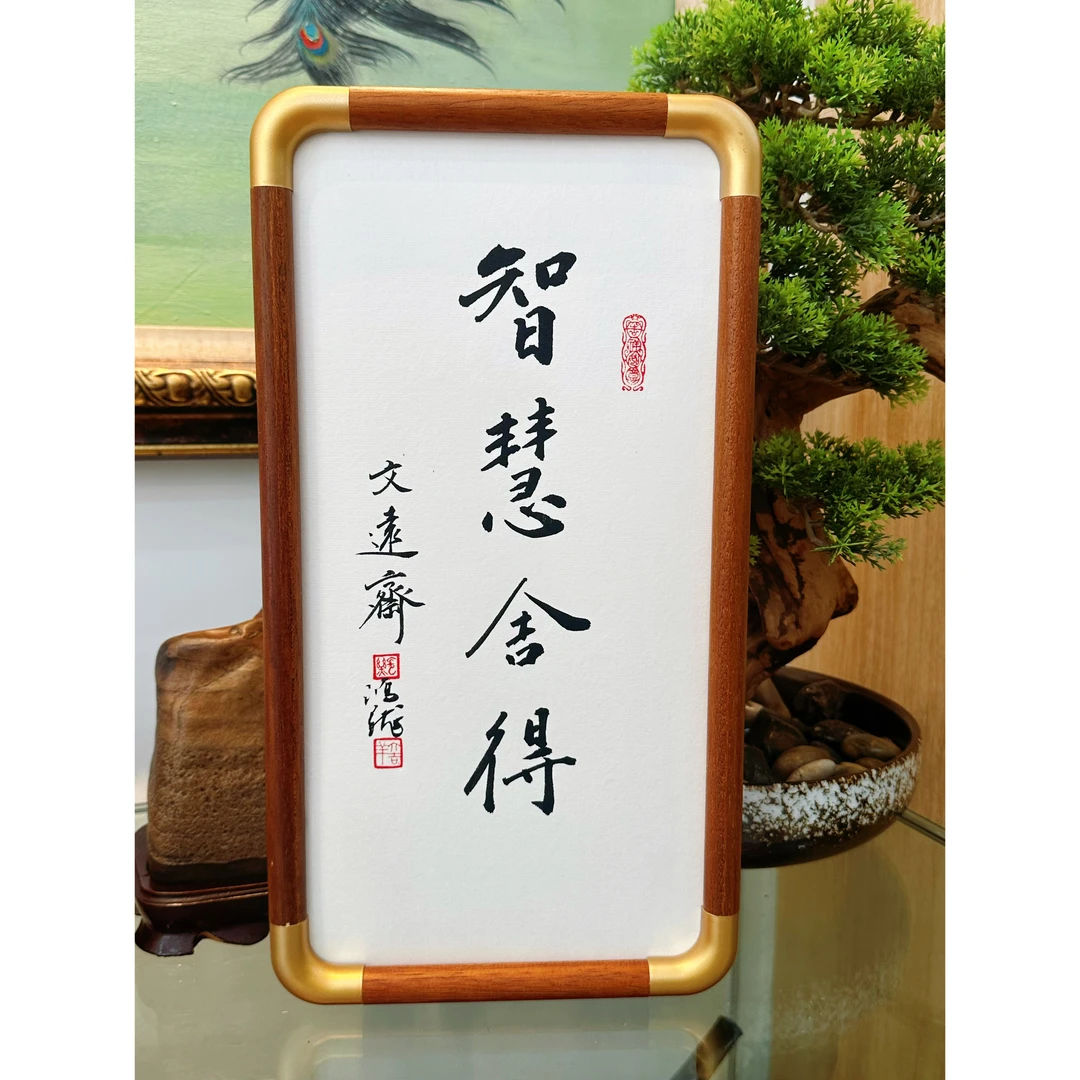 智慧舍得
文遠齋